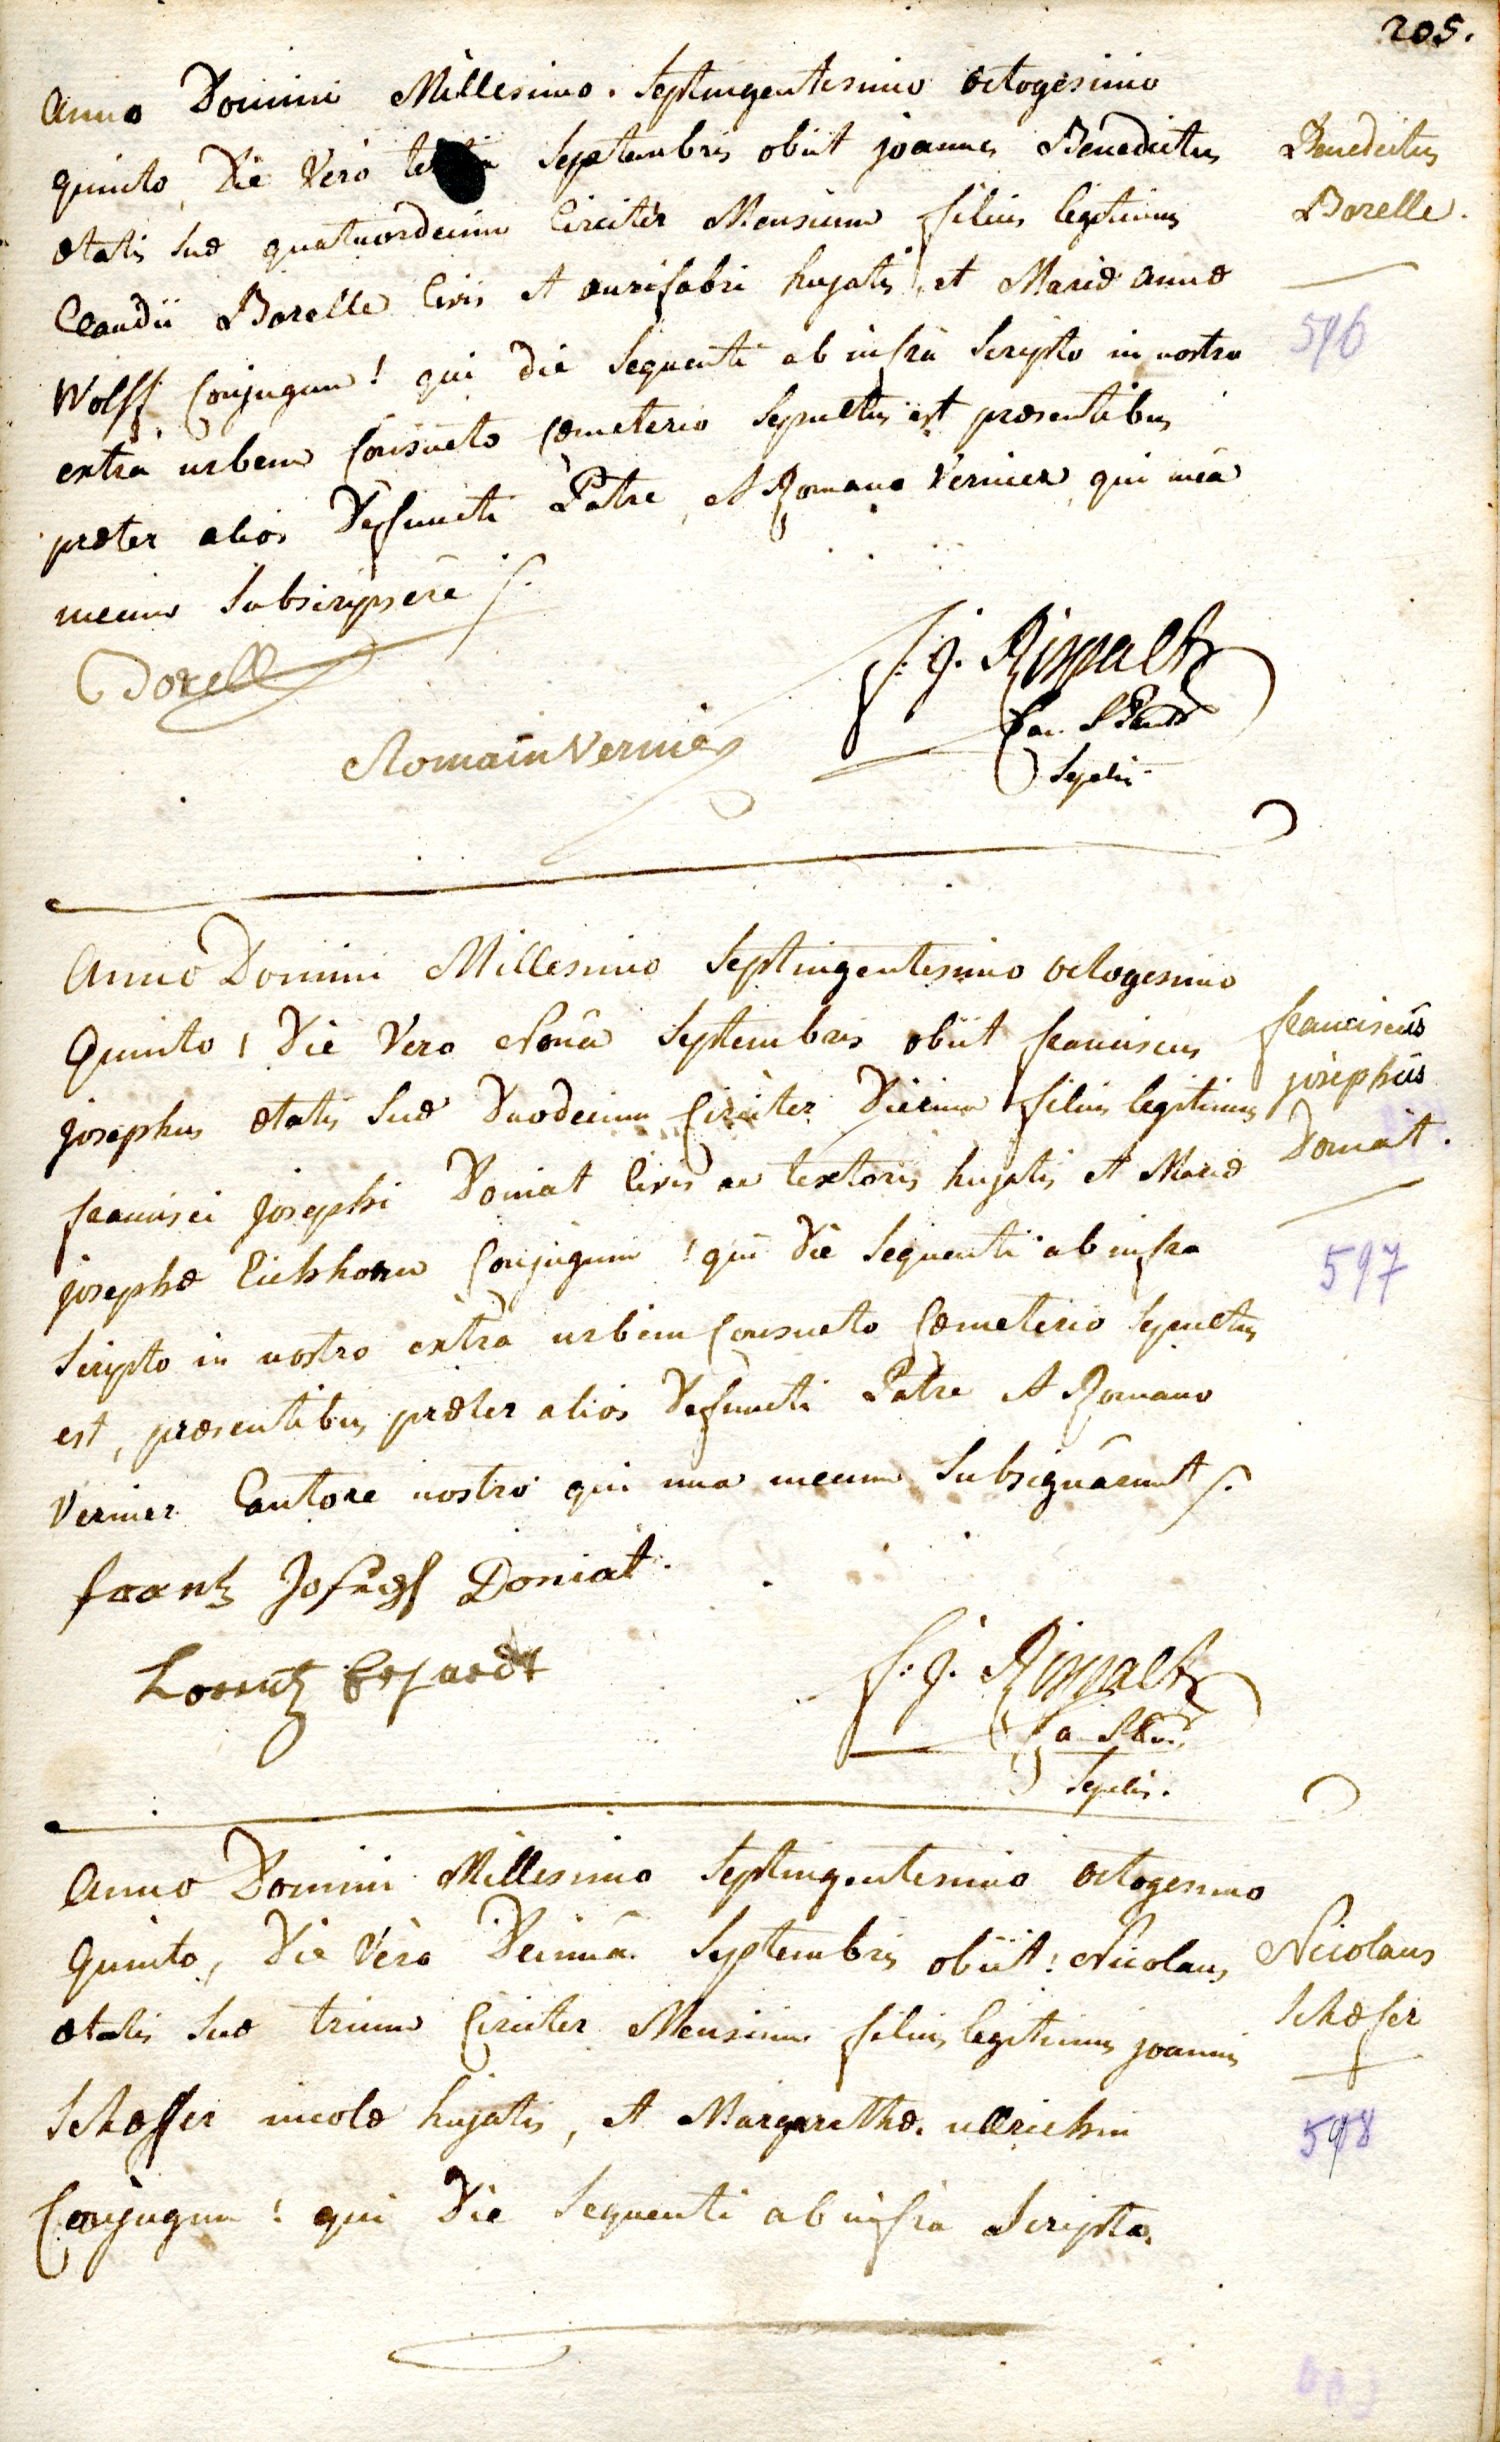 205.
Anno Domini Millesimo Septingentesimo octogesimo
quinto, Die Vero Septembris obiit joannes Benedictus
ætatis suæ quatuordecim Circiter Mensium filius legitimus
Claudii Borelle Civis et aurifabri hujatis, et Mariæ annæ
Wolff Conjugum! qui die sequenti ab infrà scripto in nostro
extrà urbem Consueto Cœmeterio sepultus est præsentibus
præter alios Defuncti Patre, et Romano Vernier, qui unà
mecum subscripsere
Benedictus
Borelle.
596
Borell
Romain Vernier
f: j. Rispalt
Sepeliì
Anno Domini Millesimo Septingentesimo octogesimo
Quinto, Die Vero Nonâ Septembris obiit franciscus
josephus ætatis suæ Duodecim Circiter Dierum filius legitimus
francisci josephi Doniat Civis ac textoris hujatis et Mariæ
josephæ Eichhorn Conjugum! qui Die sequenti ab infra
Scripto in nostro extrà urbem Consueto Cœmeterio sepultus
est, præsentibus præter alios Defuncti Patre et Romano
Vernier Cantore nostro qui una mecum subsignârunt
franciscûs
josephûs
Doniat.
597
frantz Joseph Doniat.
Lorentz Erhardt
f: j. Rispalt
Sepelii.
Anno Domini Millesimo Septingentesimo octogesimo
Quinto, Die Vero Decimâ Septembris obiit: Nicolaus
ætatis suæ trium Circiter Mensium filius legitimus joannis
Schæffer incolæ hujatis, et Margarethæ ullrichin
Conjugum! qui Die sequenti ab infrà Scripto
Nicolaus
Schæfer
598